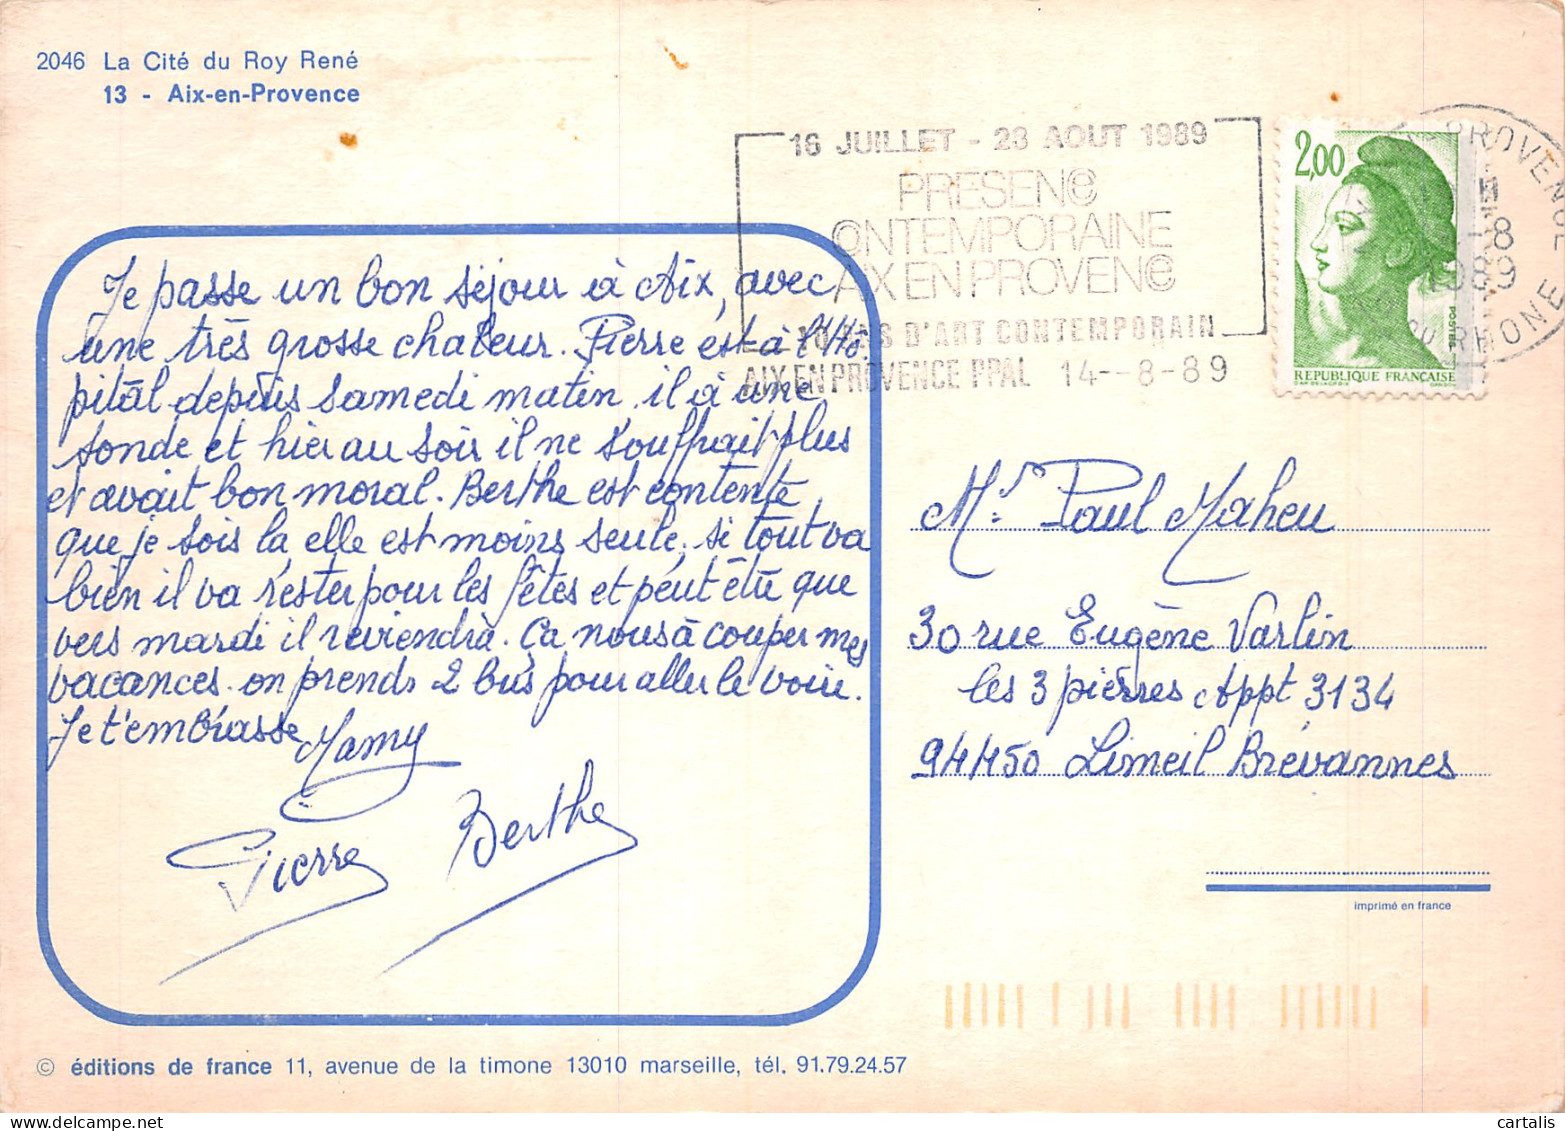 2046 La Cité du Roy René
13 - Aix-en-Provence
16 JUILLET - 28 AOUT 1989
PRESENCE
CONTEMPORAINE
AIX EN PROVENCE
D'ART CONTEMPORAIN
AIX EN PROVENCE PPAL 14--8-89
2,00
POSTES
REPUBLIQUE FRANÇAISE
PROVENCE
-8
1989
DU RHONE
Je passe un bon séjour à Aix, avec
une très grosse chaleur. Pierre est à l'Hô-
pitâl depuis samedi matin il à une
sonde et hier au soir il ne souffrait plus
et avait bon moral. Berthe est contente
que je sois la, elle est moins seule, si tout va
bien il va rester pour les fêtes et peut être que
vers mardi il reviendra. Ça nous à couper mes
vacances on prends 2 bus pour aller le voire.
Je t'embrasse Mamy
Pierre Berthe
Mr. Paul Maheu
30 rue Eugène Varlin
les 3 pierres Appt 3134
94450 Limeil Brévannes
imprimé en france
© éditions de france 11, avenue de la timone 13010 marseille, tél. 91.79.24.57
cartalis